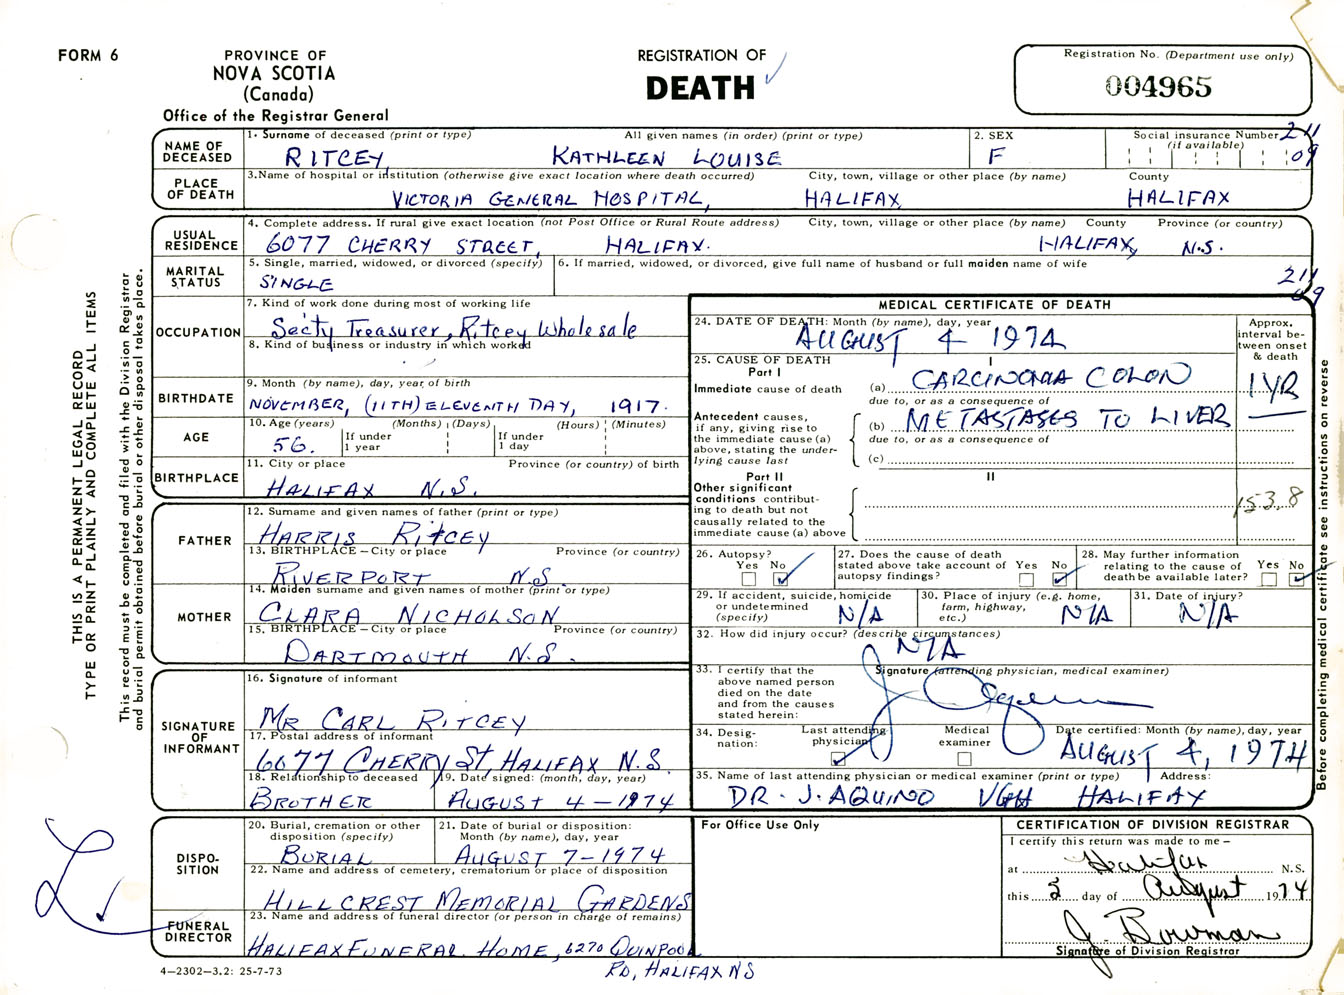 FORM 6
PROVINCE OF
NOVA SCOTIA
(Canada)
Office of the Registrar General
REGISTRATION OF
DEATH
Registration No. (Department use only)
004965
THIS IS A PERMANENT LEGAL RECORD
TYPE OR PRINT PLAINLY AND COMPLETE ALL ITEMS
This record must be completed and filed with the Division Registrar
and burial permit obtained before burial or other disposal takes place.
NAME OF
DECEASED
1. Surname of deceased (print or type) All given names (in order) (print or type)
RITCEY, KATHLEEN LOUISE
2. SEX
F
Social insurance Number
(if available)
211
09
PLACE
OF DEATH
3. Name of hospital or institution (otherwise give exact location where death occurred) City, town, village or other place (by name) County
VICTORIA GENERAL HOSPITAL, HALIFAX, HALIFAX
USUAL
RESIDENCE
4. Complete address. If rural give exact location (not Post Office or Rural Route address) City, town, village or other place (by name) County Province (or country)
6077 CHERRY STREET, HALIFAX. HALIFAX, N.S.
MARITAL
STATUS
5. Single, married, widowed, or divorced (specify)
SINGLE
6. If married, widowed, or divorced, give full name of husband or full maiden name of wife
211
09
OCCUPATION
7. Kind of work done during most of working life
Sec'ty Treasurer, Ritcey Wholesale
8. Kind of business or industry in which worked
BIRTHDATE
9. Month (by name), day, year of birth
NOVEMBER, (11TH) ELEVENTH DAY, 1917.
AGE
10. Age (years) (Months) (Days) (Hours) (Minutes)
56. If under
1 year
If under
1 day
BIRTHPLACE
11. City or place Province (or country) of birth
HALIFAX N.S.
FATHER
12. Surname and given names of father (print or type)
HARRIS RITCEY
13. BIRTHPLACE – City or place Province (or country)
RIVERPORT N.S.
MOTHER
14. Maiden surname and given names of mother (print or type)
CLARA NICHOLSON
15. BIRTHPLACE – City or place Province (or country)
DARTMOUTH N.S.
SIGNATURE
OF
INFORMANT
16. Signature of informant
MR CARL RITCEY
17. Postal address of informant
6077 CHERRY St, HALIFAX N.S.
18. Relationship to deceased
BROTHER
19. Date signed: (month, day, year)
AUGUST 4 – 1974
DISPO-
SITION
20. Burial, cremation or other
disposition (specify)
BURIAL
21. Date of burial or disposition:
Month (by name), day, year
AUGUST 7 – 1974
22. Name and address of cemetery, crematorium or place of disposition
HILLCREST MEMORIAL GARDENS
FUNERAL
DIRECTOR
23. Name and address of funeral director (or person in charge of remains)
HALIFAX FUNERAL HOME, 6270 QUINPOOL
RD, HALIFAX NS
4–2302–3.2: 25-7-73
MEDICAL CERTIFICATE OF DEATH
24. DATE OF DEATH: Month (by name), day, year
AUGUST 4 1974
Approx.
interval be-
tween onset
& death
25. CAUSE OF DEATH
Part I
I
Immediate cause of death (a) CARCINOMA COLON 1 YR
due to, or as a consequence of
Antecedent causes,
if any, giving rise to
the immediate cause (a)
above, stating the under-
lying cause last
(b) METASTASES TO LIVER
due to, or as a consequence of
(c)
Part II
II
Other significant
conditions contribut-
ing to death but not
causally related to the
immediate cause (a) above
153.8
26. Autopsy?
Yes No
27. Does the cause of death
stated above take account of
autopsy findings?
Yes No
28. May further information
relating to the cause of
death be available later?
Yes No
29. If accident, suicide, homicide
or undetermined
(specify)
N/A
30. Place of injury (e.g. home,
farm, highway,
etc.)
N/A
31. Date of injury?
N/A
32. How did injury occur? (describe circumstances)
N/A
33. I certify that the
above named person
died on the date
and from the causes
stated herein:
Signature (attending physician, medical examiner)
34. Desig-
nation:
Last attending
physician
Medical
examiner
Date certified: Month (by name), day, year
AUGUST 4, 1974
35. Name of last attending physician or medical examiner (print or type) Address:
DR. J. AQUINO VGH HALIFAX
For Office Use Only
CERTIFICATION OF DIVISION REGISTRAR
I certify this return was made to me –
at Halifax N.S.
this 5 day of August 1974
J. Bowman
Signature of Division Registrar
Before completing medical certificate see instructions on reverse